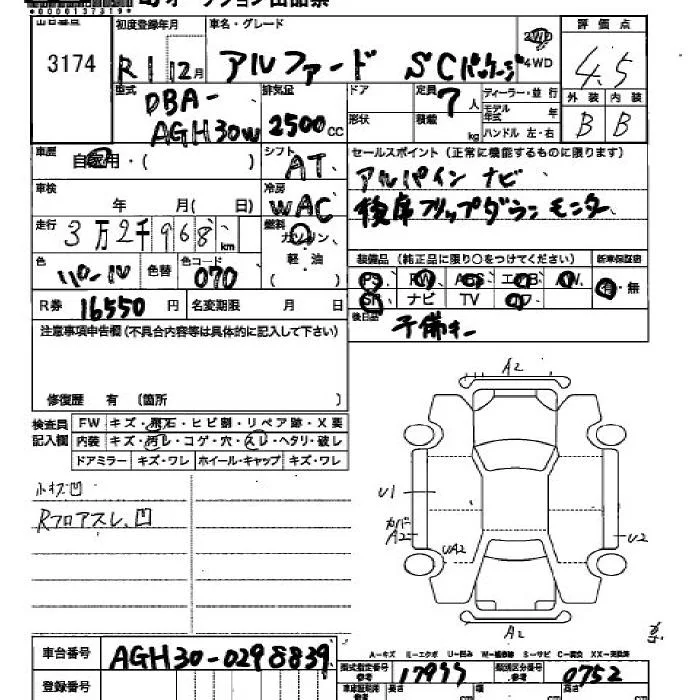 オークション出品票
*0000137319*
出品番号 3174
初度登録年月 R1 12月
車名・グレード アルファード SCパッケージ
2WD・4WD
評価点 4.5
外装 B 内装 B
型式 DBA-AGH30W
排気量 2500cc
ドア形状
定員 7人
積載 kg
ディーラー・並行
モデル年式 年
ハンドル 左・右
車歴 自家用・( )
シフト AT
セールスポイント(正常に機能するものに限ります)
アルパイン ナビ
後席フリップダウンモニター
車検 年 月( 日)
冷房 WAC
走行 3万2千968km
燃料 ガソリン・軽・油 ( )
色 色替 色コード 070
装備品(純正品に限り○をつけてください)
PS、PW、ABS、エアB、AW、
SR、ナビ TV
新車保証書 有・無
R券 16550円
名変期限 月 日
後日品 予備キー
注意事項申告欄(不具合内容等は具体的に記入して下さい)
修復歴 有(箇所 )
検査員記入欄
FW キズ・飛石・ヒビ割・リペア跡・X要
内装 キズ・汚レ・コゲ・穴・スレ・ヘタリ・破レ
ドアミラー キズ・ワレ ホイール・キャップ キズ・ワレ
小キズ凹
Rフロアスレ、凹
A2
U1
カバーA2
UA2
U2
A2
A-キズ E-エクボ U-凹み W-補修跡 S-サビ C-腐食 XX-交換済
車台番号 AGH30-0298839
型式指定番号 17955
類別区分番号 0752
登録番号
長さ cm